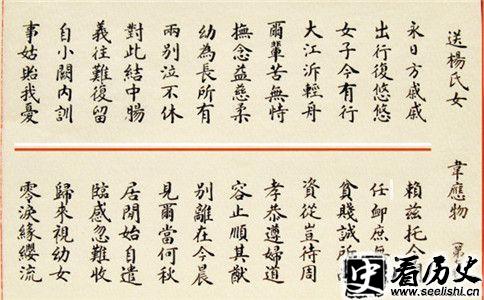 送楊氏女
永日方戚戚
出行復悠悠
女子今有行
大江泝輕舟
爾輩苦無恃
撫念益慈柔
幼為長所育
兩別泣不休
對此結中腸
義往難復留
自小闕內訓
事姑貽我憂
韋應物
賴茲托令
任卹庶無
貧賤誠所
資從豈待周
孝恭遵婦道
容止順其猷
別離在今晨
見爾當何秋
居閒始自遣
臨感忽難收
歸來視幼女
零淚緣纓流
史看历史
www.seelishi.cn